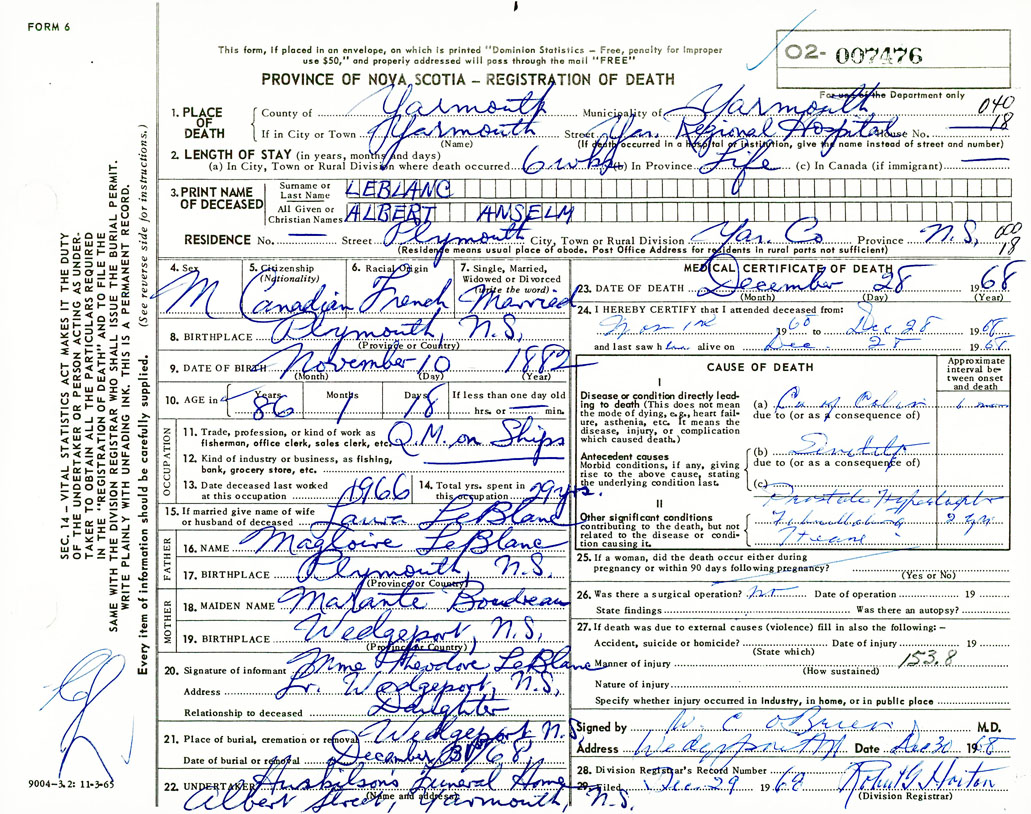 FORM 6
This form, if placed in an envelope, on which is printed "Dominion Statistics — Free, penalty for improper
use $50," and properly addressed will pass through the mail "FREE"
02- 007476
PROVINCE OF NOVA SCOTIA — REGISTRATION OF DEATH
For use of the Department only
1. PLACE OF DEATH
County of Yarmouth Municipality of Yarmouth 040
If in City or Town Yarmouth Street Yar. Regional Hospital House No. — 18
(Name) (If death occurred in a hospital or institution, give the name instead of street and number)
2. LENGTH OF STAY (in years, months and days)
(a) In City, Town or Rural Division where death occurred 6 wks (b) In Province Life (c) In Canada (if immigrant) —
3. PRINT NAME OF DECEASED
Surname or Last Name LEBLANC
All Given or Christian Names ALBERT ANSELM
RESIDENCE No. — Street Plymouth City, Town or Rural Division Yar. Co Province N.S, 000
18
(Residence means usual place of abode. Post Office Address for residents in rural parts not sufficient)
4. Sex M
5. Citizenship (Nationality) Canadian
6. Racial Origin French
7. Single, Married, Widowed or Divorced (write the word) Married
8. BIRTHPLACE Plymouth, N.S,
(Province or Country)
9. DATE OF BIRTH November 10 1882
(Month) (Day) (Year)
10. AGE in Years 86 Months 1 Days 18 If less than one day old hrs. or min.
OCCUPATION
11. Trade, profession, or kind of work as fisherman, office clerk, sales clerk, etc. Q.M. on Ships
12. Kind of industry or business, as fishing, bank, grocery store, etc.
13. Date deceased last worked at this occupation 1966
14. Total yrs. spent in this occupation 29 yrs.
15. If married give name of wife or husband of deceased Laura LeBlanc
FATHER
16. NAME Magloire LeBlanc
17. BIRTHPLACE Plymouth, N.S.
(Province or Country)
MOTHER
18. MAIDEN NAME Marante Boudreau
19. BIRTHPLACE Wedgeport, N.S,
(Province or Country)
20. Signature of informant Mme Theodore LeBlanc
Address Lr. Wedgeport, N.S,
Relationship to deceased Daughter
21. Place of burial, cremation or removal Wedgeport N.S,
Date of burial or removal December 31st/68
22. UNDERTAKER Huskilson's Funeral Home
(Name and address)
Albert Street, Yarmouth, N.S.
MEDICAL CERTIFICATE OF DEATH
23. DATE OF DEATH December 28 1968
(Month) (Day) (Year)
24. I HEREBY CERTIFY that I attended deceased from:
1960 to Dec 28 1968
and last saw him alive on Dec. 28 1968.
CAUSE OF DEATH
Approximate interval between onset and death
I
Disease or condition directly leading to death (This does not mean the mode of dying, e.g., heart failure, asthenia, etc. It means the disease, injury, or complication which caused death.)
(a) Ca of Colon
due to (or as a consequence of)
Antecedent causes
Morbid conditions, if any, giving rise to the above cause, stating the underlying condition last.
(b) Senility
due to (or as a consequence of)
(c)
II
Other significant conditions contributing to the death, but not related to the disease or condition causing it.
Prostate
2 yrs
25. If a woman, did the death occur either during pregnancy or within 90 days following pregnancy?
(Yes or No)
26. Was there a surgical operation? no Date of operation 19
State findings Was there an autopsy?
27. If death was due to external causes (violence) fill in also the following: —
Accident, suicide or homicide? Date of injury 19
(State which)
Manner of injury 153.8
(How sustained)
Nature of injury
Specify whether injury occurred in Industry, in home, or in public place
Signed by W. C. O'Brien M.D.
Address Wedgeport NS Date Dec 30 1968
28. Division Registrar's Record Number
29. Filed Dec. 29 1968 Robert G Horton
(Division Registrar)
SEC. 14 – VITAL STATISTICS ACT MAKES IT THE DUTY
OF THE UNDERTAKER OR PERSON ACTING AS UNDER-
TAKER TO OBTAIN ALL THE PARTICULARS REQUIRED
IN THE "REGISTRATION OF DEATH" AND TO FILE THE
SAME WITH THE DIVISION REGISTRAR WHO SHALL ISSUE THE BURIAL PERMIT.
WRITE PLAINLY WITH UNFADING INK. THIS IS A PERMANENT RECORD.
Every item of information should be carefully supplied. (See reverse side for instructions.)
9004-3.2: 11-3-65